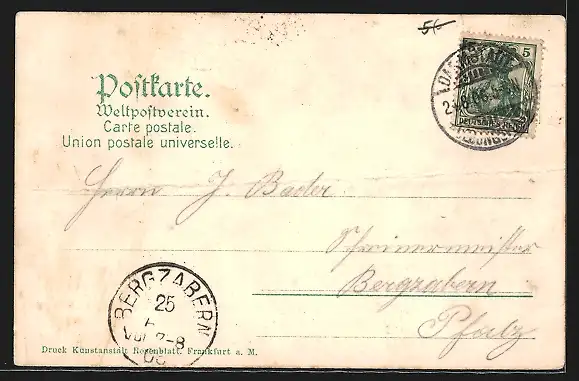 5
Postkarte.
Weltpostverein.
Carte postale.
Union postale universelle.
Herrn J. Bader
Schreinermeister
Bergzabern
Pfalz
BERGZABERN
25
VOR. 7-8
Druck Kunstanstalt Rosenblatt. Frankfurt a. M.